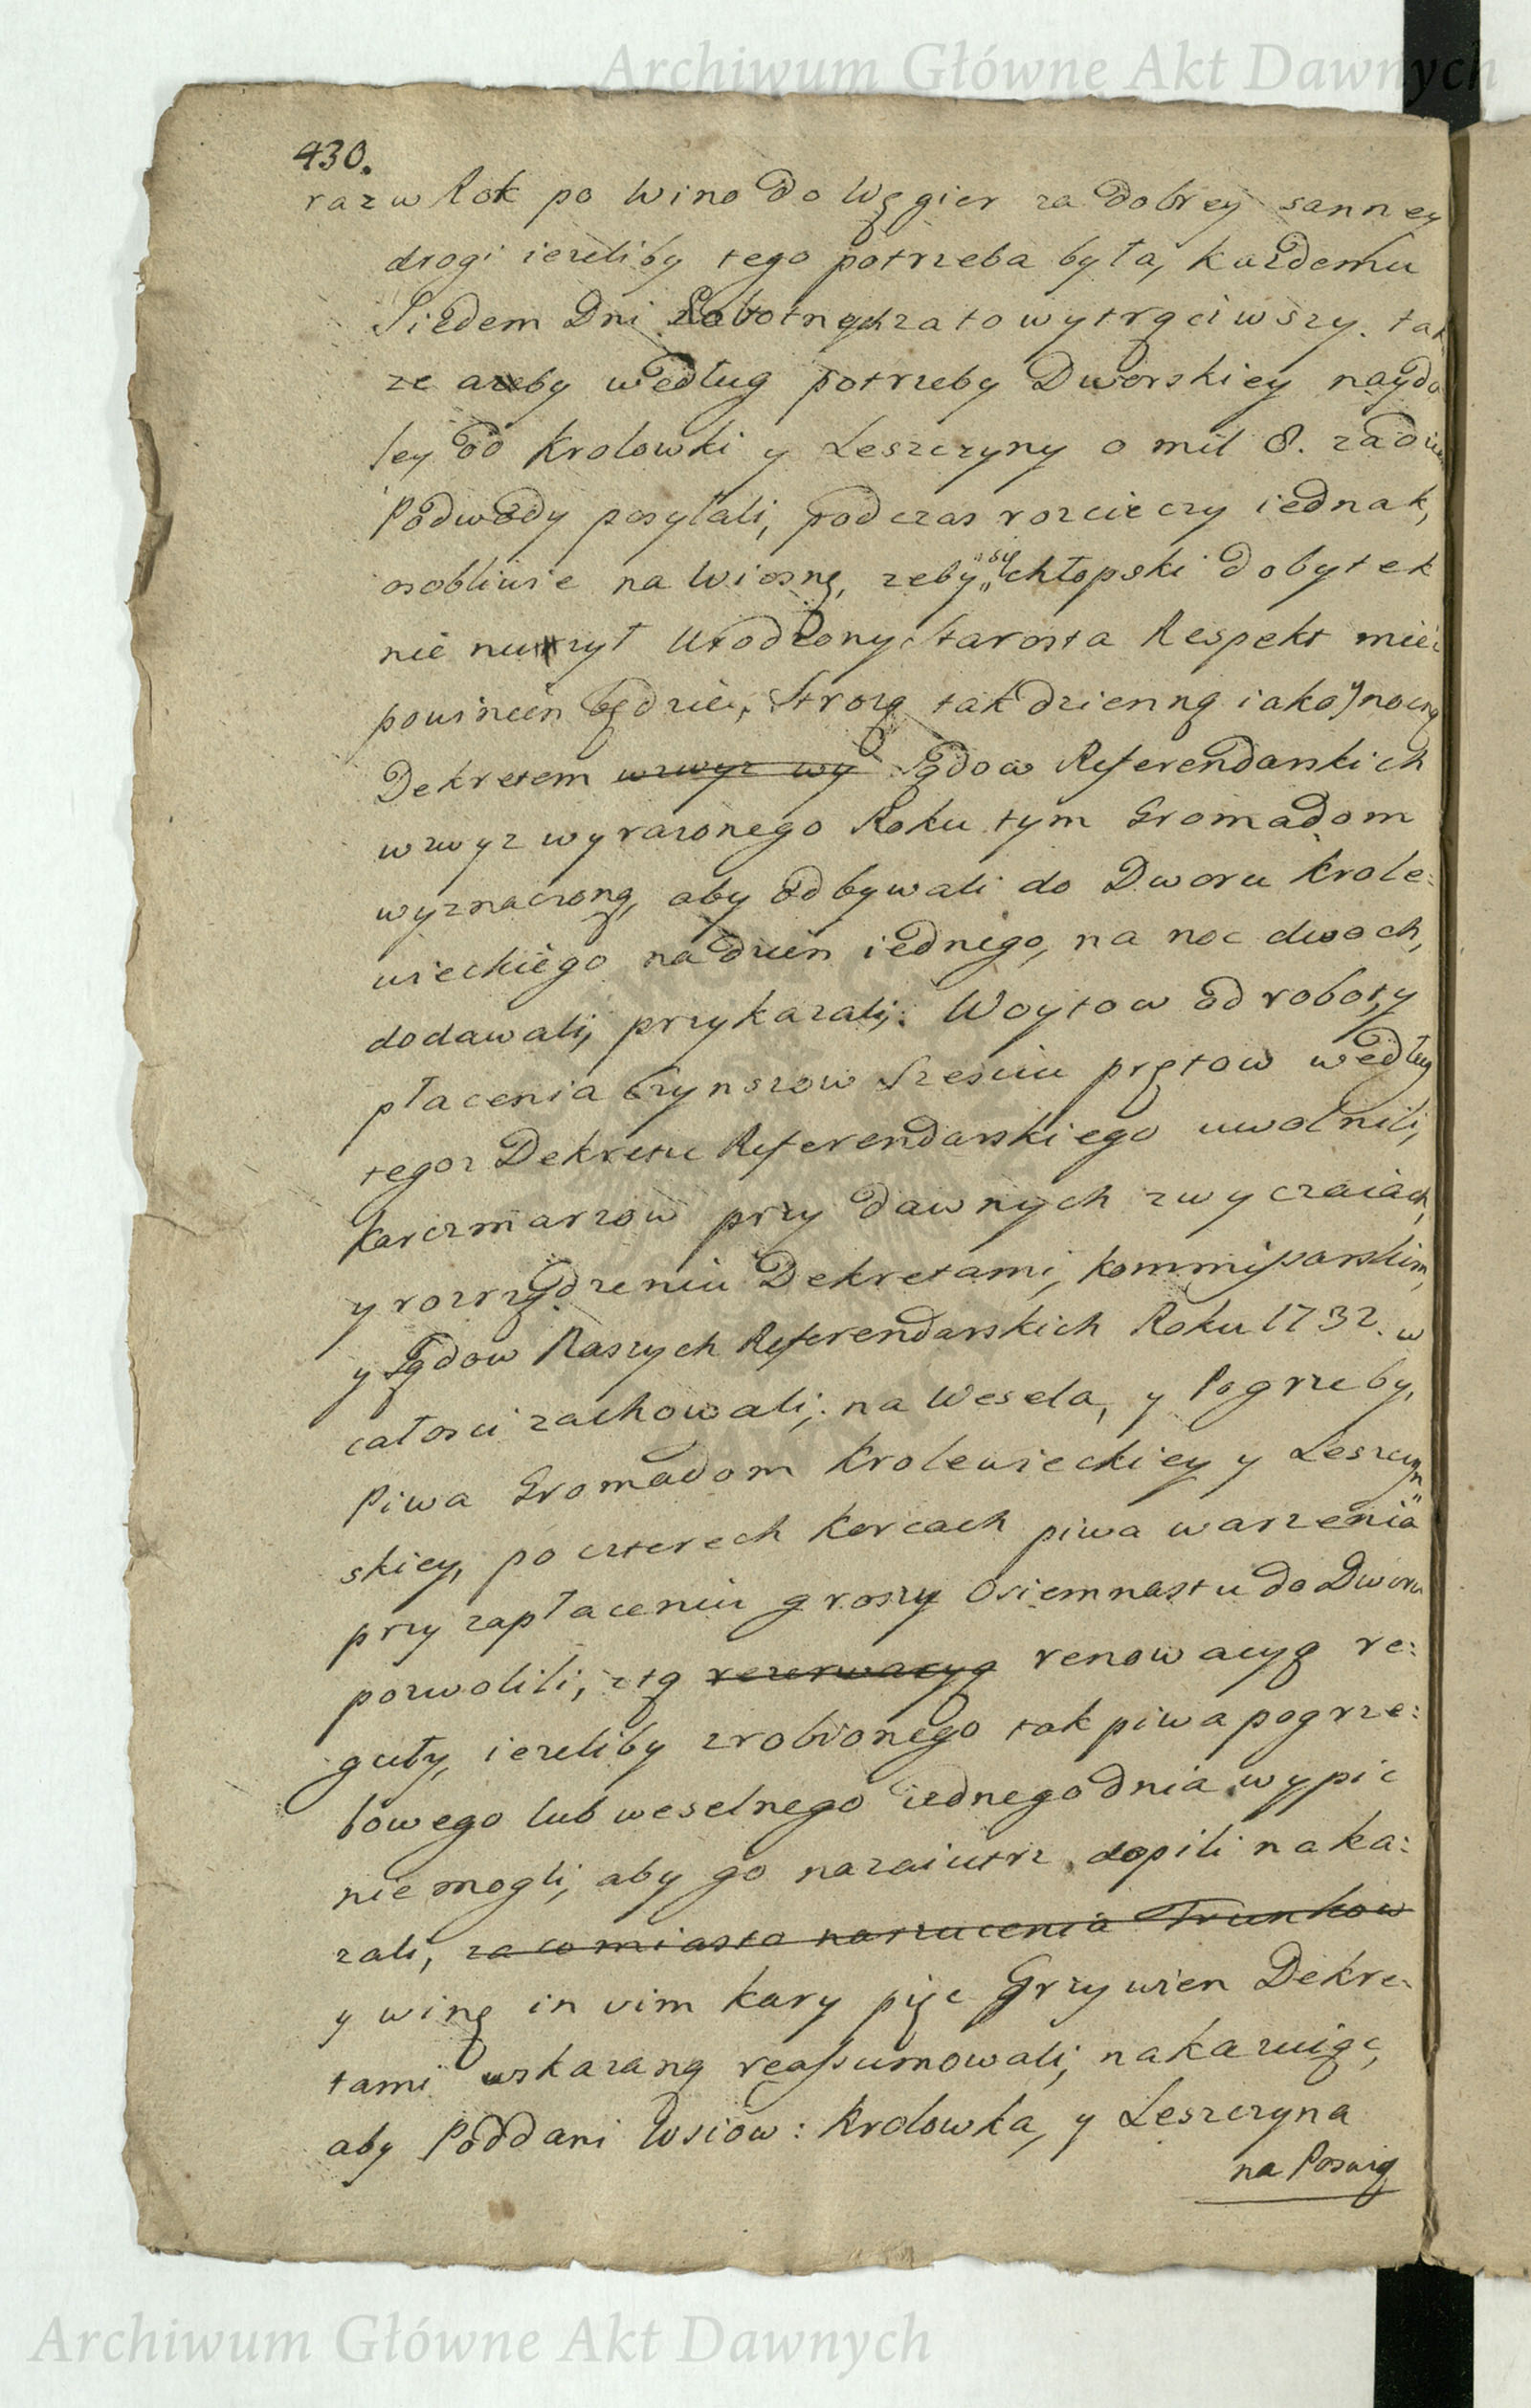 Archiwum Główne Akt Dawnych
430.
raz w Rok po Wino do Węgier za dobrey sanney
drogi ieżeliby tego potrzeba była, każdemu
Siedem Dni Robotnych za to wytrąciwszy. tak
ze azeby według potrzeby Dworskiey nayda
ley od Krolowki y Leszczyny o mil 8. za dzien
Podwody posyłali, podczas rozcieczy iednak,
osobliwie na Wiosnę, zeby się chłopski dobytek
nie nużył Urodzony Starosta Respekt mieć
powinien będzie, Strożą tak dzienną iako y nocną
Dekretem wzwyz wy Sądow Referendarskich
wzwyz wyrazonego Roku tym Gromadom
wyznaczoną, aby odbywali do Dworu Krole:
wieckiego na dzien iednego, na noc dwoch,
dodawali, przykazali; Woytow od roboty, y
płacenia Czynszow Szesciu prętow według
tegoz Dekretu Referendarskiego uwolnili,
Karczmarzow przy dawnych zwyczaiach,
y rozrządzeniu Dekretami, kommissarskim,
y Sądow Naszych Referendarskich Roku 1732. w
całosci zachowali; na Wesela, y Pogrzeby,
Piwa Gromadom Krolewieckiey y Leszczyn
skiey, po czterech Korcach piwa warzenia
przy zapłaceniu groszy Osiemnastu do Dworu
pozwolili, z tą rezerwacyą renowacyą re:
guły, ieżeliby zrobionego tak piwa pogrze:
bowego lub weselnego iednego dnia wypic
nie mogli, aby go nazaiutrz dopili naka:
zali, za co miasto narzucenia Trunkow
y winę in vim kary pięc Grzywien Dekre:
tami wskazaną reassumowali; nakazuiąc,
aby Poddani Wsiow: Krolowka, y Leszczyna
na Poswię
Archiwum Główne Akt Dawnych